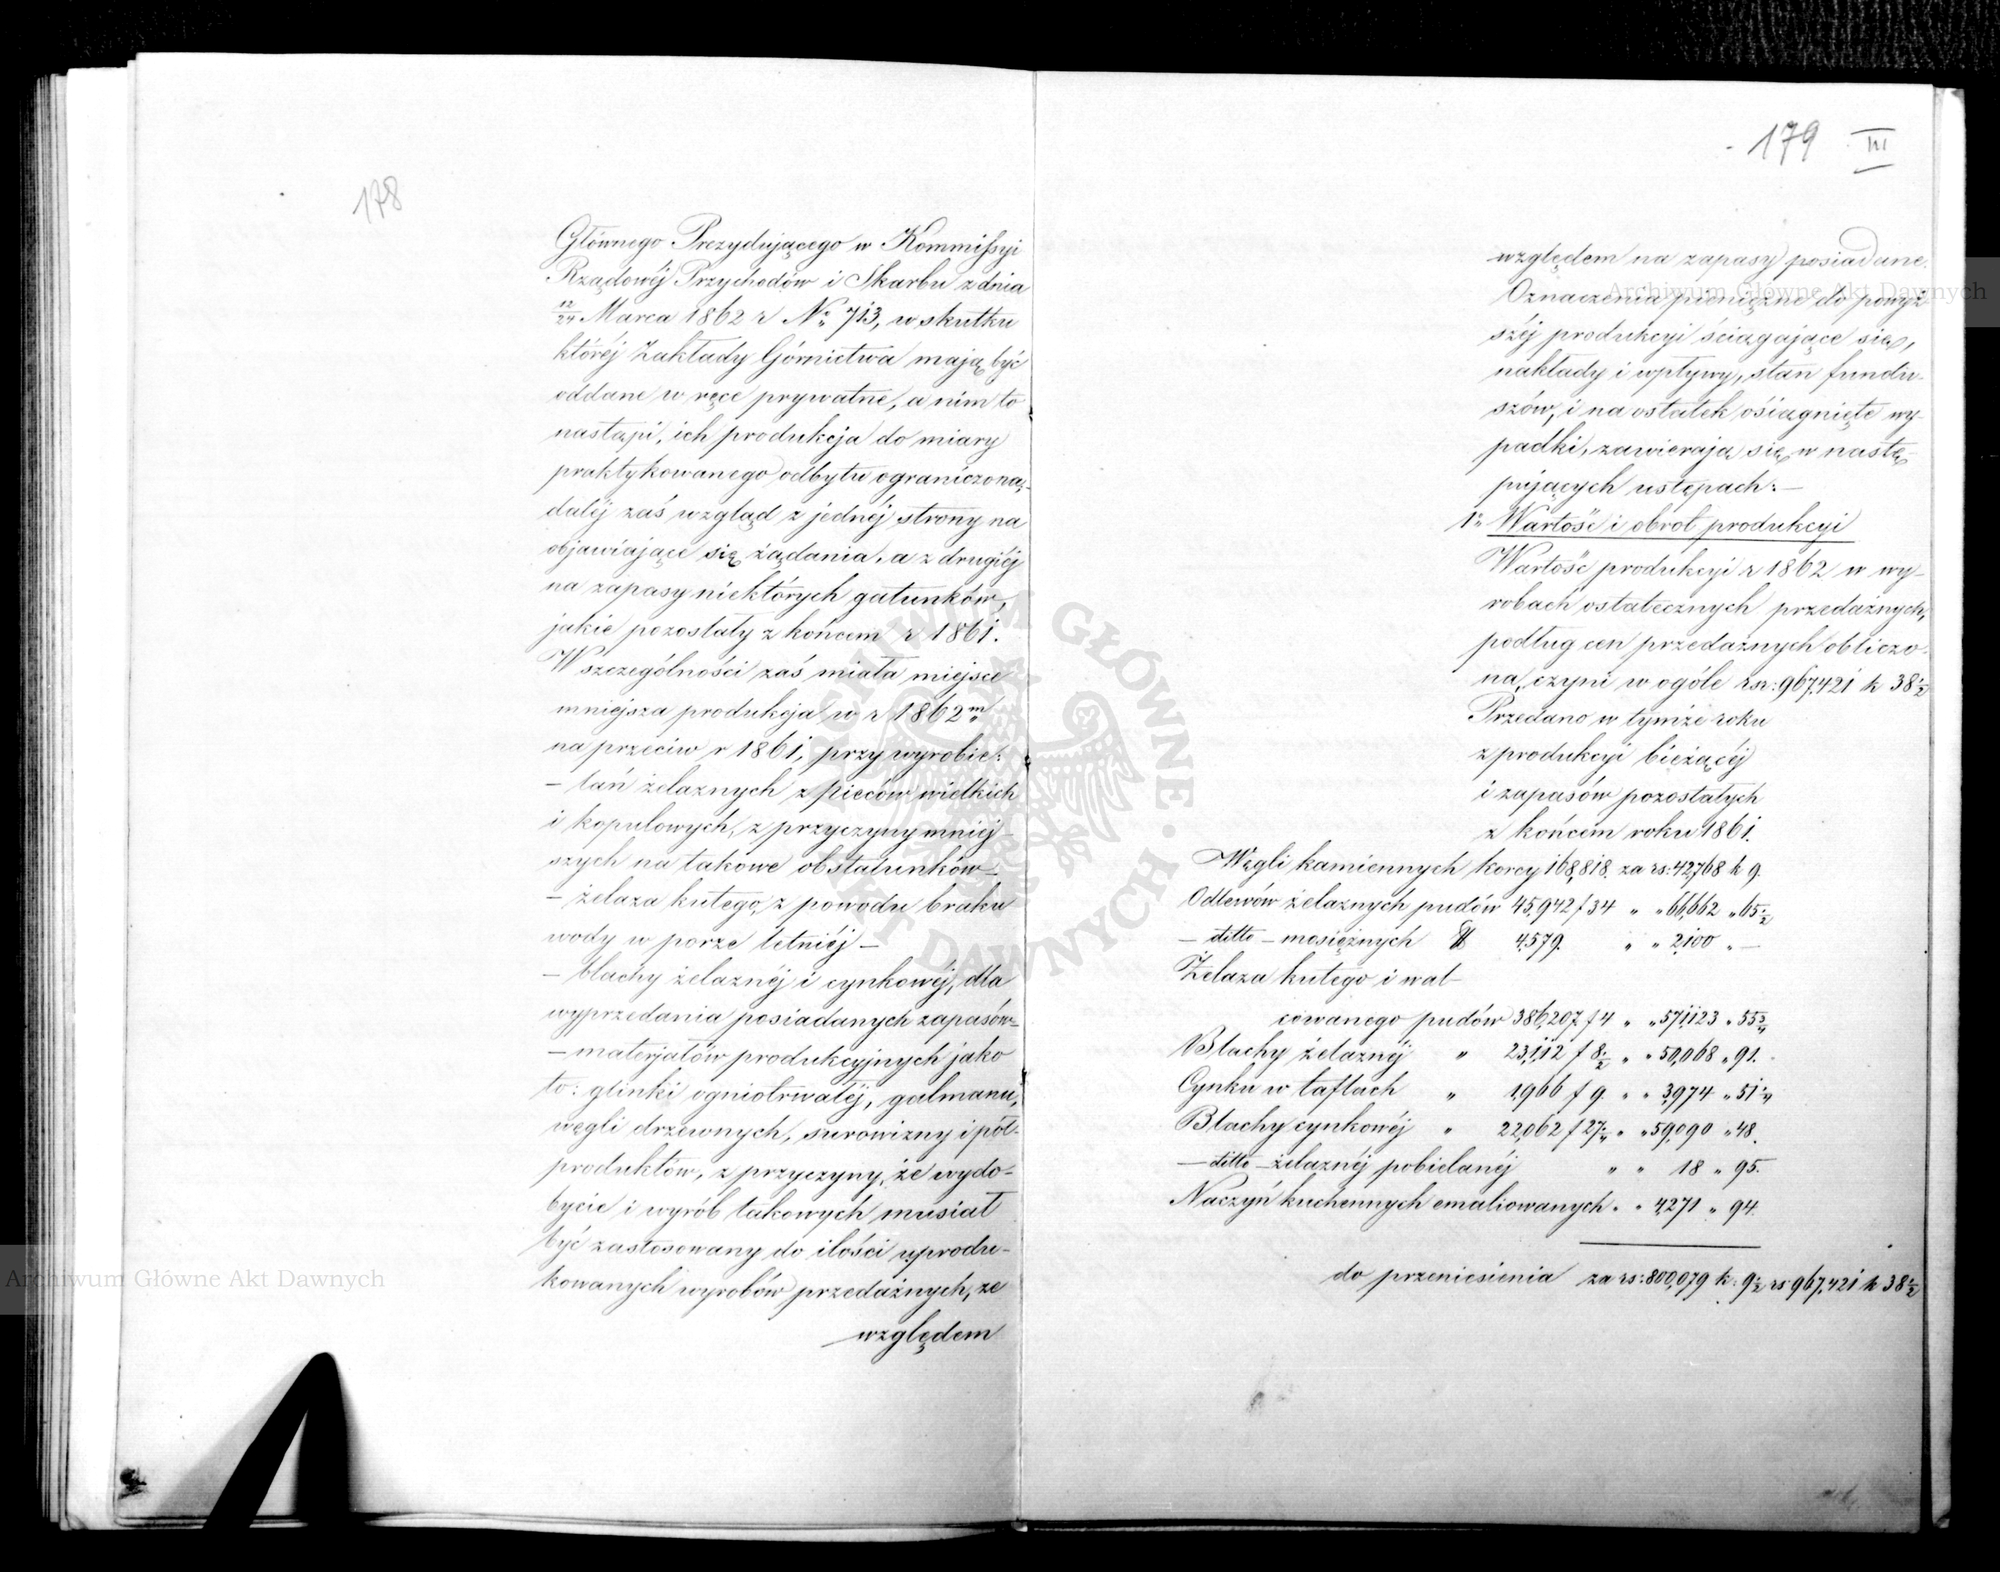 178
Głównego Prezydującego w Kommissyi
Rządowéj Przychodów i Skarbu z dnia
12/24 Marca 1862 r No 713, w skutku
któréj Zakłady Górnictwa mają być
oddane w ręce prywatne, a nim to
nastąpi, ich produkcja do miary
praktykowanego odbytu ograniczoną,
daléj zaś wzgląd z jednéj strony na
objawiające się żądania, a z drugiéj
na zapasy niektórych gatunków,
jakie pozostały z końcem r 1861.
W szczególności zaś miała miejsce
mniejsza produkcja w r 1862m
na przeciw r 1861, przy wyrobie:
– lań żelaznych z pieców wielkich
i kopulowych, z przyczyny mniéj-
szych na takowe obstalunków –
– żelaza kutego, z powodu braku
wody w porze letniéj –
– blachy żelaznéj i cynkowéj, dla
wyprzedania posiadanych zapasów –
– materjałów produkcyjnych jako
to: glinki ogniotrwałéj, galmanu,
węgli drzewnych, surowizny i pół-
produktów, z przyczyny, że wydo-
bycie i wyrób takowych musiał
być zastosowany do ilości uprodu-
kowanych wyrobów przedażnych, ze
względem
179 III
względem na zapasy posiadane.
Oznaczenia pieniężne do powyż-
széj produkcyi ściągające się,
nakłady i wpływy, stan fundu-
szów, i na ostatek osiągnięte wy-
padki, zawierają się w nastę-
pujących ustępach: –
1o Wartość i obrót produkcyi
Wartość produkcyi r 1862 w wy-
robach ostatecznych przedażnych,
podług cen przedażnych obliczo-
na, czyni w ogóle rsr: 967,421 k 38 1/2
Przedano w tymże roku
z produkcyi bieżącéj
i zapasów pozostałych
z końcem roku 1861.
Węgli kamiennych korcy 168,818. za rs: 42,768 k 9.
Odlewów żelaznych pudów 45,942 f 34 " " 66,662 " 65 1/2
– ditto – mosiężnych ℔ 4,579. " " 2,100 " –
Żelaza kutego i wal-
cowanego pudów 386,207 f 4 " " 571,123 " 55 3/4
Blachy żelaznéj " 23,112 f 8 1/2 " " 50,068 " 91.
Cynku w taflach " 1,966 f 9. " " 3,974 " 51 1/4
Blachy cynkowéj " 22,062 f 27 1/4 " " 59,090 " 48.
– ditto – żelaznéj pobielanéj " " 18 " 95.
Naczyń kuchennych emaliowanych " " 4271 " 94.
do przeniesienia za rs: 800,079 k: 9 1/2 rs 967,421 k 38 1/2
Archiwum Główne Akt Dawnych
Archiwum Główne Akt Dawnych
ARCHIWUM GŁÓWNE AKT DAWNYCH